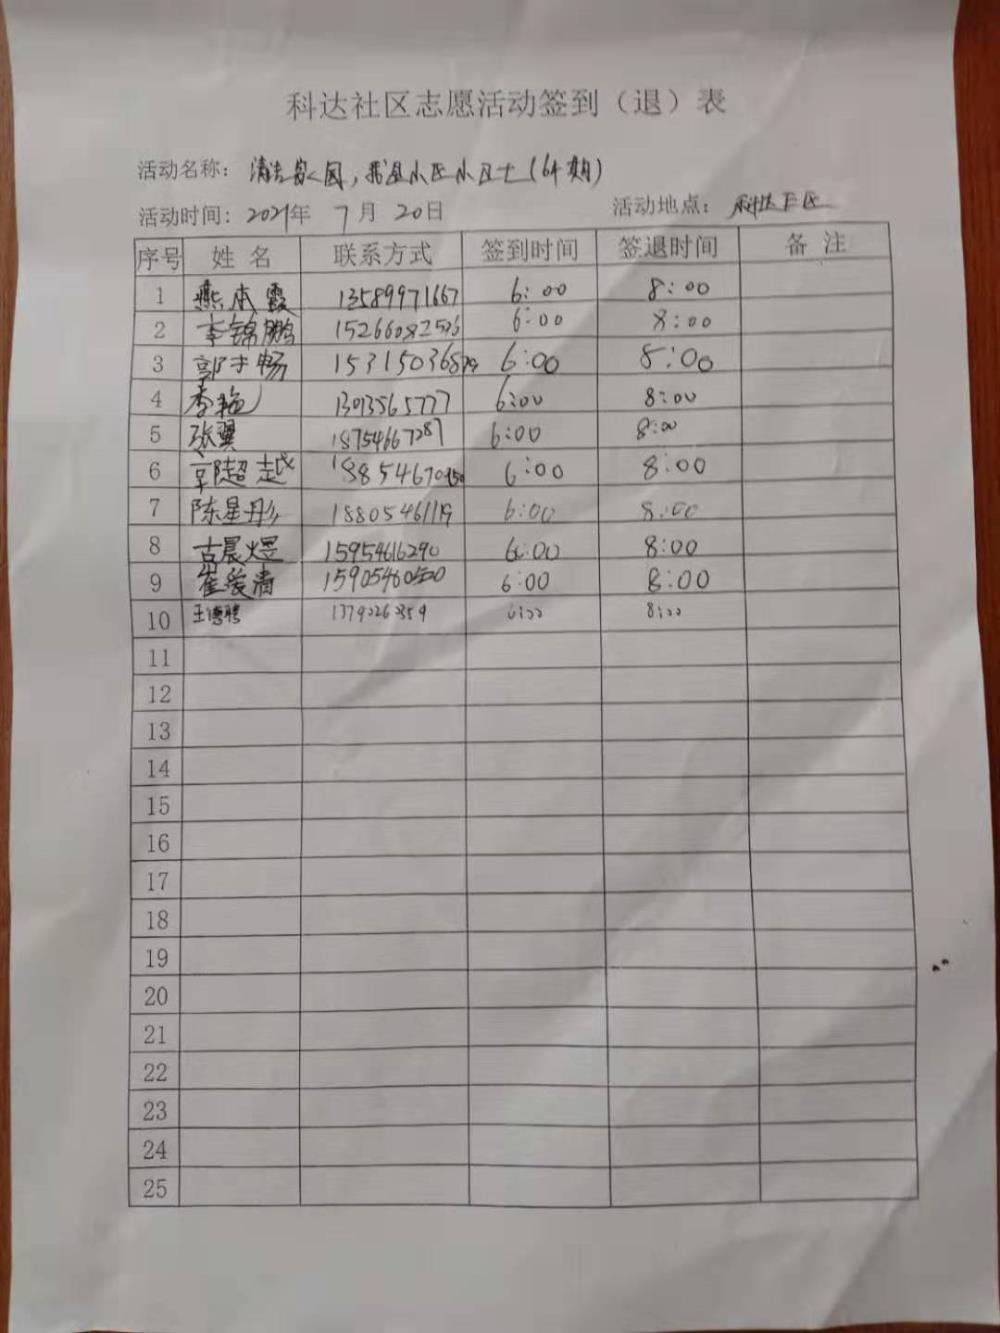 科达社区志愿活动签到（退）表
活动名称：清洁家园，我是小区小卫士（64期）
活动时间：2021年 7月 20日 活动地点：科达E区
序号 姓名 联系方式 签到时间 签退时间 备注
1 燕本霞 13589971667 6:00 8:00
2 李锦鹏 15266082506 6:00 8:00
3 郭于畅 6:00 8:00
4 李艳 13013565777 6:00 8:00
5 张翼 18754667287 6:00 8:00
6 郭超越 6:00 8:00
7 陈星彤 18805461119 6:00 8:00
8 古晨煜 15954616290 6:00 8:00
9 崔爱清 15905460500 6:00 8:00
10 王德骋 6:00 8:00
11
12
13
14
15
16
17
18
19
20
21
22
23
24
25